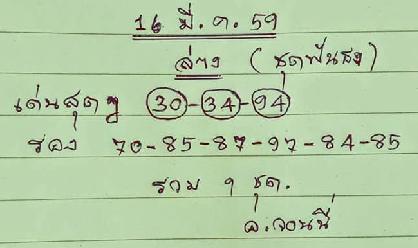 16 มี.ค. 59
ล่าง (ชุดฟันธง)
เด่นสุดๆ 30-34-94
รอง 70-85-87-97-84-85
รวม ๆ ชุด.
อ.จอนนี่